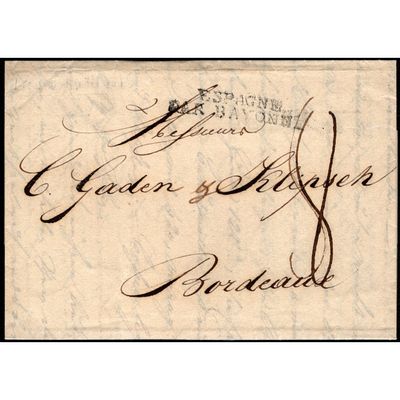 ESPAGNE
PAR BAYONNE
Messieurs
C. Gaden & Klipsch
8
Bordeaux